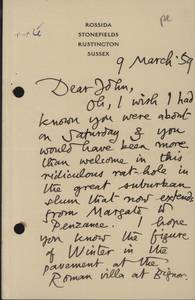 ROSSIDA
STONEFIELDS
RUSTINGTON
SUSSEX
9 March. 59
Dear John,
Oh, I wish I had
known you were about
on Saturday & you
would have been more
than welcome in this
ridiculous rat-hole in
the great suburban
slum that now extends
from Margate to
Penzance. I hope
you know the figure
of Winter in the
pavement at the
Roman villa at Bignor.